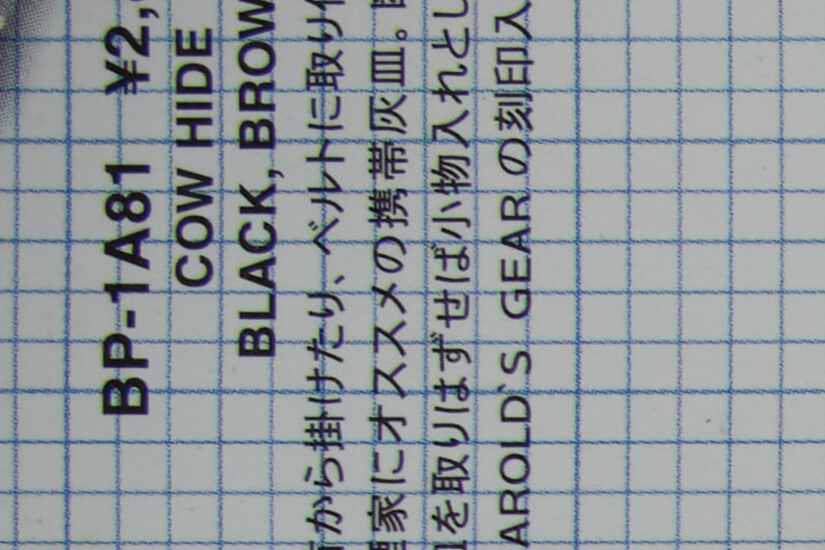 BP-1A81 ¥2,
COW HIDE
BLACK, BROW
から掛けたり、ベルトに取り付
家にオススメの携帯灰皿。
を取りはずせば小物入れとし
AROLD'S GEARの刻印入